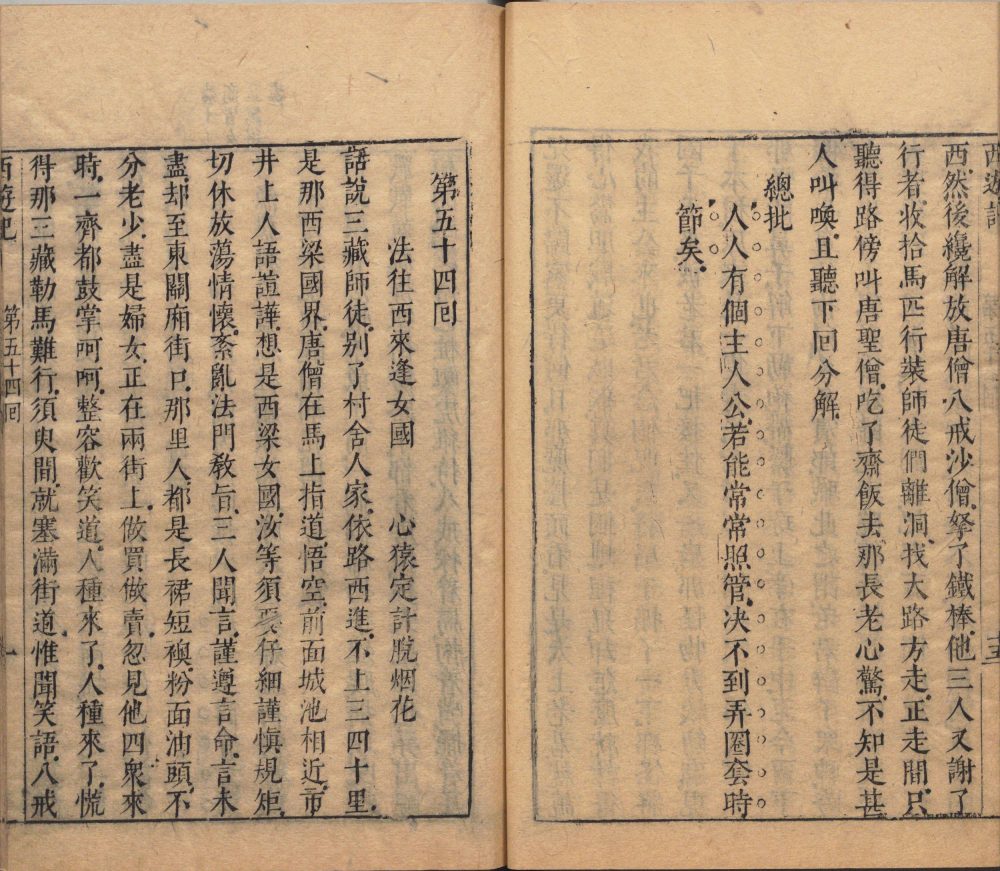 西然後纔解放唐僧八戒沙僧拏了鐵棒他三人又謝了
行者收拾馬匹行裝師徒們離洞找大路方走正走間只
聽得路傍叫唐聖僧吃了齋飯去那長老心驚不知是甚
人叫喚且聽下回分解
總批
人人有個主人公若能常常照管决不到弄圈套時
節矣
第五十四回
法往西來逢女國 心猿定計脫烟花
話說三藏師徒别了村舍人家依路西進不上三四十里
是那西梁國界唐僧在馬上指道悟空前面城池相近市
井上人語諠譁想是西梁女國汝等須要仔細謹慎規矩
切休放蕩情懷紊亂法門教旨三人聞言謹遵言命言未
盡却至東關廂街口那里人都是長裙短襖粉面油頭不
分老少盡是婦女正在兩街上做買做賣忽見他四衆來
時一齊都鼓掌呵呵整容歡笑道人種來了人種來了慌
得那三藏勒馬難行須臾間就塞滿街道惟聞笑語八戒
西遊記 第五十四回 一